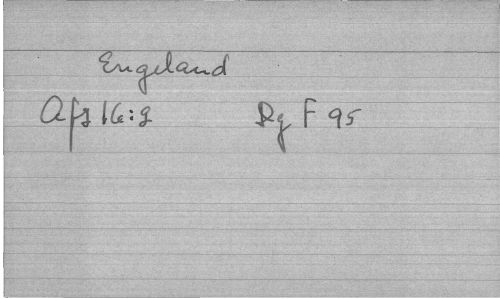 Engeland
Afs 16:9 Dg F 95